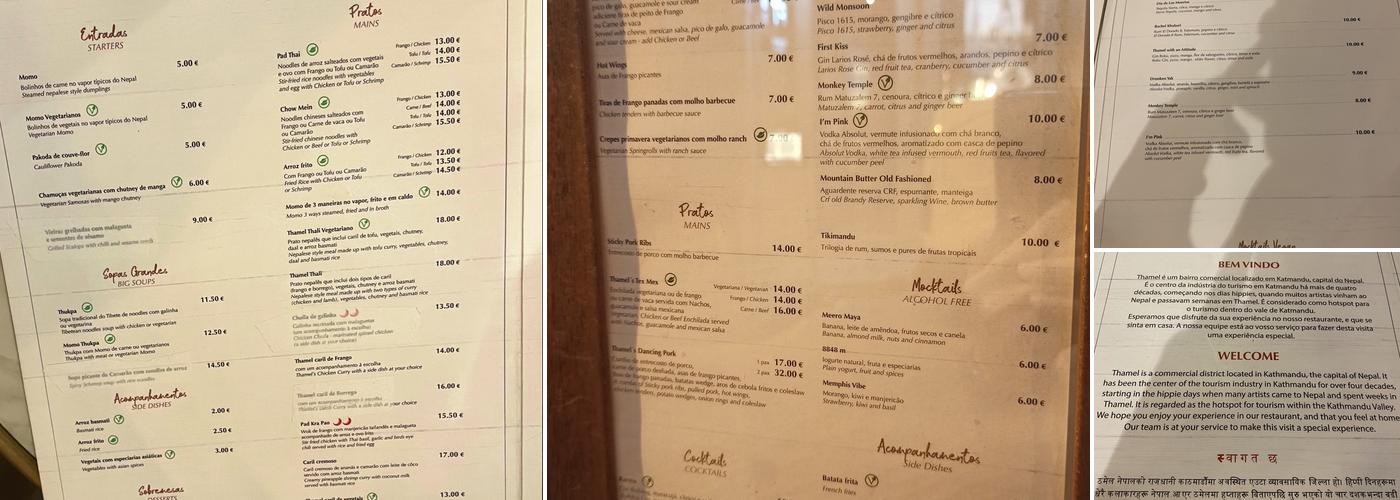 Entradas
STARTERS
Momo 5.00 €
Bolinhos de carne no vapor típicos do Nepal
Steamed nepalese style dumplings
Momo Vegetarianos 5.00 €
Bolinhos de vegetais no vapor típicos do Nepal
Vegetarian Momo
Pakoda de couve-flor 5.00 €
Cauliflower Pakoda
Chamuças vegetarianas com chutney de manga 6.00 €
Vegetarian Samosas with mango chutney
9.00 €
Vieiras grelhadas com malagueta
e sementes de sésamo
Grilled Scallops with chilli and sesame seeds
Sopas Grandes
BIG SOUPS
Thukpa 11.50 €
Sopa tradicional do Tibete de noodles com galinha
ou vegetariana
Tibetean noodles soup with chicken or vegetarian
Momo Thukpa 12.50 €
Thukpa com Momo de carne ou vegetariano
Thukpa with meat or vegetarian Momo
14.50 €
Sopa picante de Camarão com noodles de arroz
Spicy Schrimp soup with rice noodles
Acompanhamentos
SIDE DISHES
Arroz basmati 2.00 €
Basmati rice
Arroz frito 2.50 €
Fried rice
Vegetais com especiarias asiáticas 3.00 €
Vegetables with asian spices
Sobremesas
DESSERTS
Pratos
MAINS
Pad Thai
Frango / Chicken 13.00 €
Tofu / Tofu 14.00 €
Camarão / Schrimp 15.50 €
Noodles de arroz salteados com vegetais
e ovo com Frango ou Tofu ou Camarão
Stir-fried rice noodles with vegetables
and egg with Chicken or Tofu or Schrimp
Chow Mein
Frango / Chicken 13.00 €
Carne / Beef 14.00 €
Tofu / Tofu 14.00 €
Camarão / Schrimp 15.50 €
Noodles chineses salteados com
Frango ou Carne de vaca ou Tofu
ou Camarão
Stir-fried chinese noodles with
Chicken or Beef or Tofu or Schrimp
Arroz frito
Frango / Chicken 12.00 €
Tofu / Tofu 13.50 €
Camarão / Schrimp 14.50 €
Com Frango ou Tofu ou Camarão
Fried Rice with Chicken or Tofu
or Schrimp
Momo de 3 maneiras no vapor, frito e em caldo 14.00 €
Momo 3 ways steamed, fried and in broth
Thamel Thali Vegetariano 18.00 €
Prato nepalês que inclui caril de tofu, vegetais, chutney,
daal e arroz basmati
Nepalese style meal made up with tofu curry, vegetables, chutney,
daal and basmati rice
Thamel Thali 18.00 €
Prato nepalês que inclui dois tipos de caril
(frango e borrego), vegetais, chutney e arroz basmati
Nepalese style meal made up with two types of curry
(chicken and lamb), vegetables, chutney and basmati rice
13.50 €
Thamel caril de Frango 14.00 €
com um acompanhamento à escolha
Thamel's Chicken Curry with a side dish at your choice
Thamel caril de Borrego 16.00 €
com um acompanhamento à escolha
Pad Kra Pao 15.50 €
Wok de frango com manjericão tailandês e malagueta
acompanhado de arroz e ovo frito
Stir fried chicken with Thai basil, garlic and birds eye
chili served with rice and fried egg
Caril cremoso 17.00 €
Caril cremoso de ananás e camarão com leite de côco
servido com arroz basmati
Creamy pineapple shrimp curry with coconut milk
served with basmati rice
13.00 €
pico de galo, guacamole e sour cream
adicione tiras de peito de Frango
ou Carne de vaca
Served with cheese, mexican salsa, pico de galo, guacamole
and sour cream - add Chicken or Beef
Hot Wings 7.00 €
Asas de Frango picantes
Tiras de Frango panadas com molho barbecue 7.00 €
Chicken tenders with barbecue sauce
Crepes primavera vegetarianos com molho ranch 7.00 €
Vegetarian Springrolls with ranch sauce
Pratos
MAINS
Sticky Pork Ribs 14.00 €
Entrecosto de porco com molho barbecue
Thamel's Tex Mex
Vegetariana / Vegetarian 14.00 €
Frango / Chicken 14.00 €
Carne / Beef 16.00 €
Enchilada vegetariana ou de frango
ou carne de vaca servida com Nachos,
guacamole e salsa mexicana
Vegetarian, Chicken or Beef Enchilada served
with Nachos, guacamole and mexican salsa
Thamel's Dancing Pork
1 pax 17.00 €
2 pax 32.00 €
Cocktails
COCKTAILS
Wild Monsoon
Pisco 1615, morango, gengibre e cítrico
Pisco 1615, strawberry, ginger and citrus
First Kiss 7.00 €
Gin Larios Rosé, chá de frutos vermelhos, arandos, pepino e cítrico
Larios Rose Gin, red fruit tea, cranberry, cucumber and citrus
Monkey Temple 8.00 €
Rum Matuzalem 7, cenoura, cítrico e ginger
Matuzalem 7, carrot, citrus and ginger beer
I'm Pink 10.00 €
Vodka Absolut, vermute infusionado com chá branco,
chá de frutos vermelhos, aromatizado com casca de pepino
Absolut Vodka, white tea infused vermouth, red fruits tea, flavored
with cucumber peel
Mountain Butter Old Fashioned 8.00 €
Aguardente reserva CRF, espumante, manteiga
Crf old Brandy Reserve, sparkling Wine, brown butter
Tikimandu 10.00 €
Trilogia de rum, sumos e pures de frutas tropicais
Mocktails
ALCOHOL FREE
Meero Maya 6.00 €
Banana, leite de amêndoa, frutos secos e canela
Banana, almond milk, nuts and cinnamon
8848 m 6.00 €
Iogurte natural, fruta e especiarias
Plain yogurt, fruit and spices
Memphis Vibe 6.00 €
Morango, kiwi e manjericão
Strawberry, kiwi and basil
Acompanhamentos
Side Dishes
Batata frita
French fries
10.00 €
Thamel with an Attitude 10.00 €
Drunken Yak 9.00 €
Monkey Temple 8.00 €
I'm Pink 10.00 €
BEM VINDO
Thamel é um bairro comercial localizado em Katmandu, capital do Nepal.
É o centro da indústria do turismo em Katmandu há mais de quatro
décadas, começando nos dias hippies, quando muitos artistas vinham ao
Nepal e passavam semanas em Thamel. É considerado como hotspot para
o turismo dentro do vale de Katmandu.
Esperamos que disfrute da sua experiência no nosso restaurante, e que se
sinta em casa. A nossa equipe está ao vosso serviço para fazer desta visita
uma experiência especial.
WELCOME
Thamel is a commercial district located in Kathmandu, the capital of Nepal. It
has been the center of the tourism industry in Kathmandu for over four decades,
starting in the hippie days when many artists came to Nepal and spent weeks in
Thamel. It is regarded as the hotspot for tourism within the Kathmandu Valley.
We hope you enjoy your experience in our restaurant, and that you feel at home
Our team is at your service to make this visit a special experience.
स्वागत छ
ठमेल नेपालको राजधानी काठमाडौंमा अवस्थित एउटा व्यावसायिक जिल्ला हो। हिप्पी दिनहरूमा